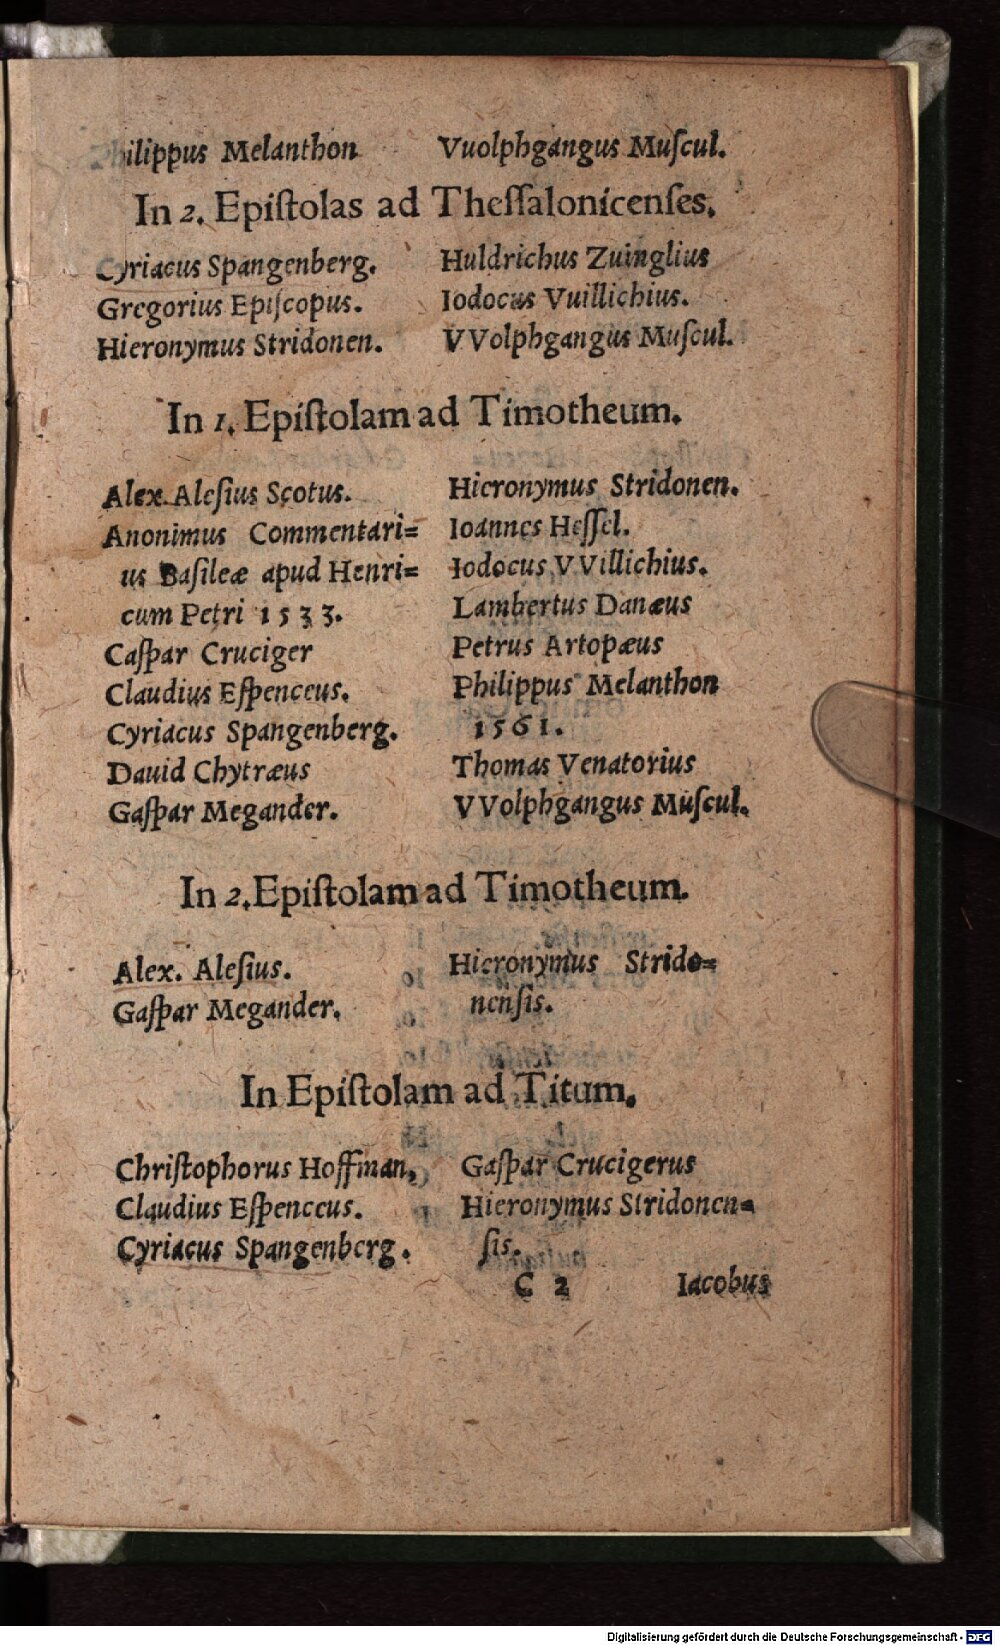 Philippus Melanthon
Vuolphgangus Muſcul.
In 2. Epiſtolas ad Theſſalonicenſes.
Cyriacus Spangenberg.
Gregorius Epiſcopus.
Hieronymus Stridonen.
Huldrichus Zuinglius
Iodocus Vuillichius.
VVolphgangus Muſcul.
In 1. Epiſtolam ad Timotheum.
Alex. Aleſius Scotus.
Anonimus Commentari=
us Baſileæ apud Henri=
cum Petri 1533.
Caſpar Cruciger
Claudius Eſpenceus.
Cyriacus Spangenberg.
Dauid Chytræus
Gaſpar Megander.
Hieronymus Stridonen.
Ioannes Heſſel.
Iodocus VVillichius.
Lambertus Danæus
Petrus Artopæus
Philippus Melanthon
1561.
Thomas Venatorius
VVolphgangus Muſcul.
In 2. Epiſtolam ad Timotheum.
Alex. Aleſius.
Gaſpar Megander.
Hieronymus Strido=
nenſis.
In Epiſtolam ad Titum.
Chriſtophorus Hoffman,
Claudius Eſpenceus.
Cyriacus Spangenberg.
Gaſpar Crucigerus
Hieronymus Stridonen=
ſis.
C 2 Iacobus
Digitalisierung gefördert durch die Deutsche Forschungsgemeinschaft - DFG